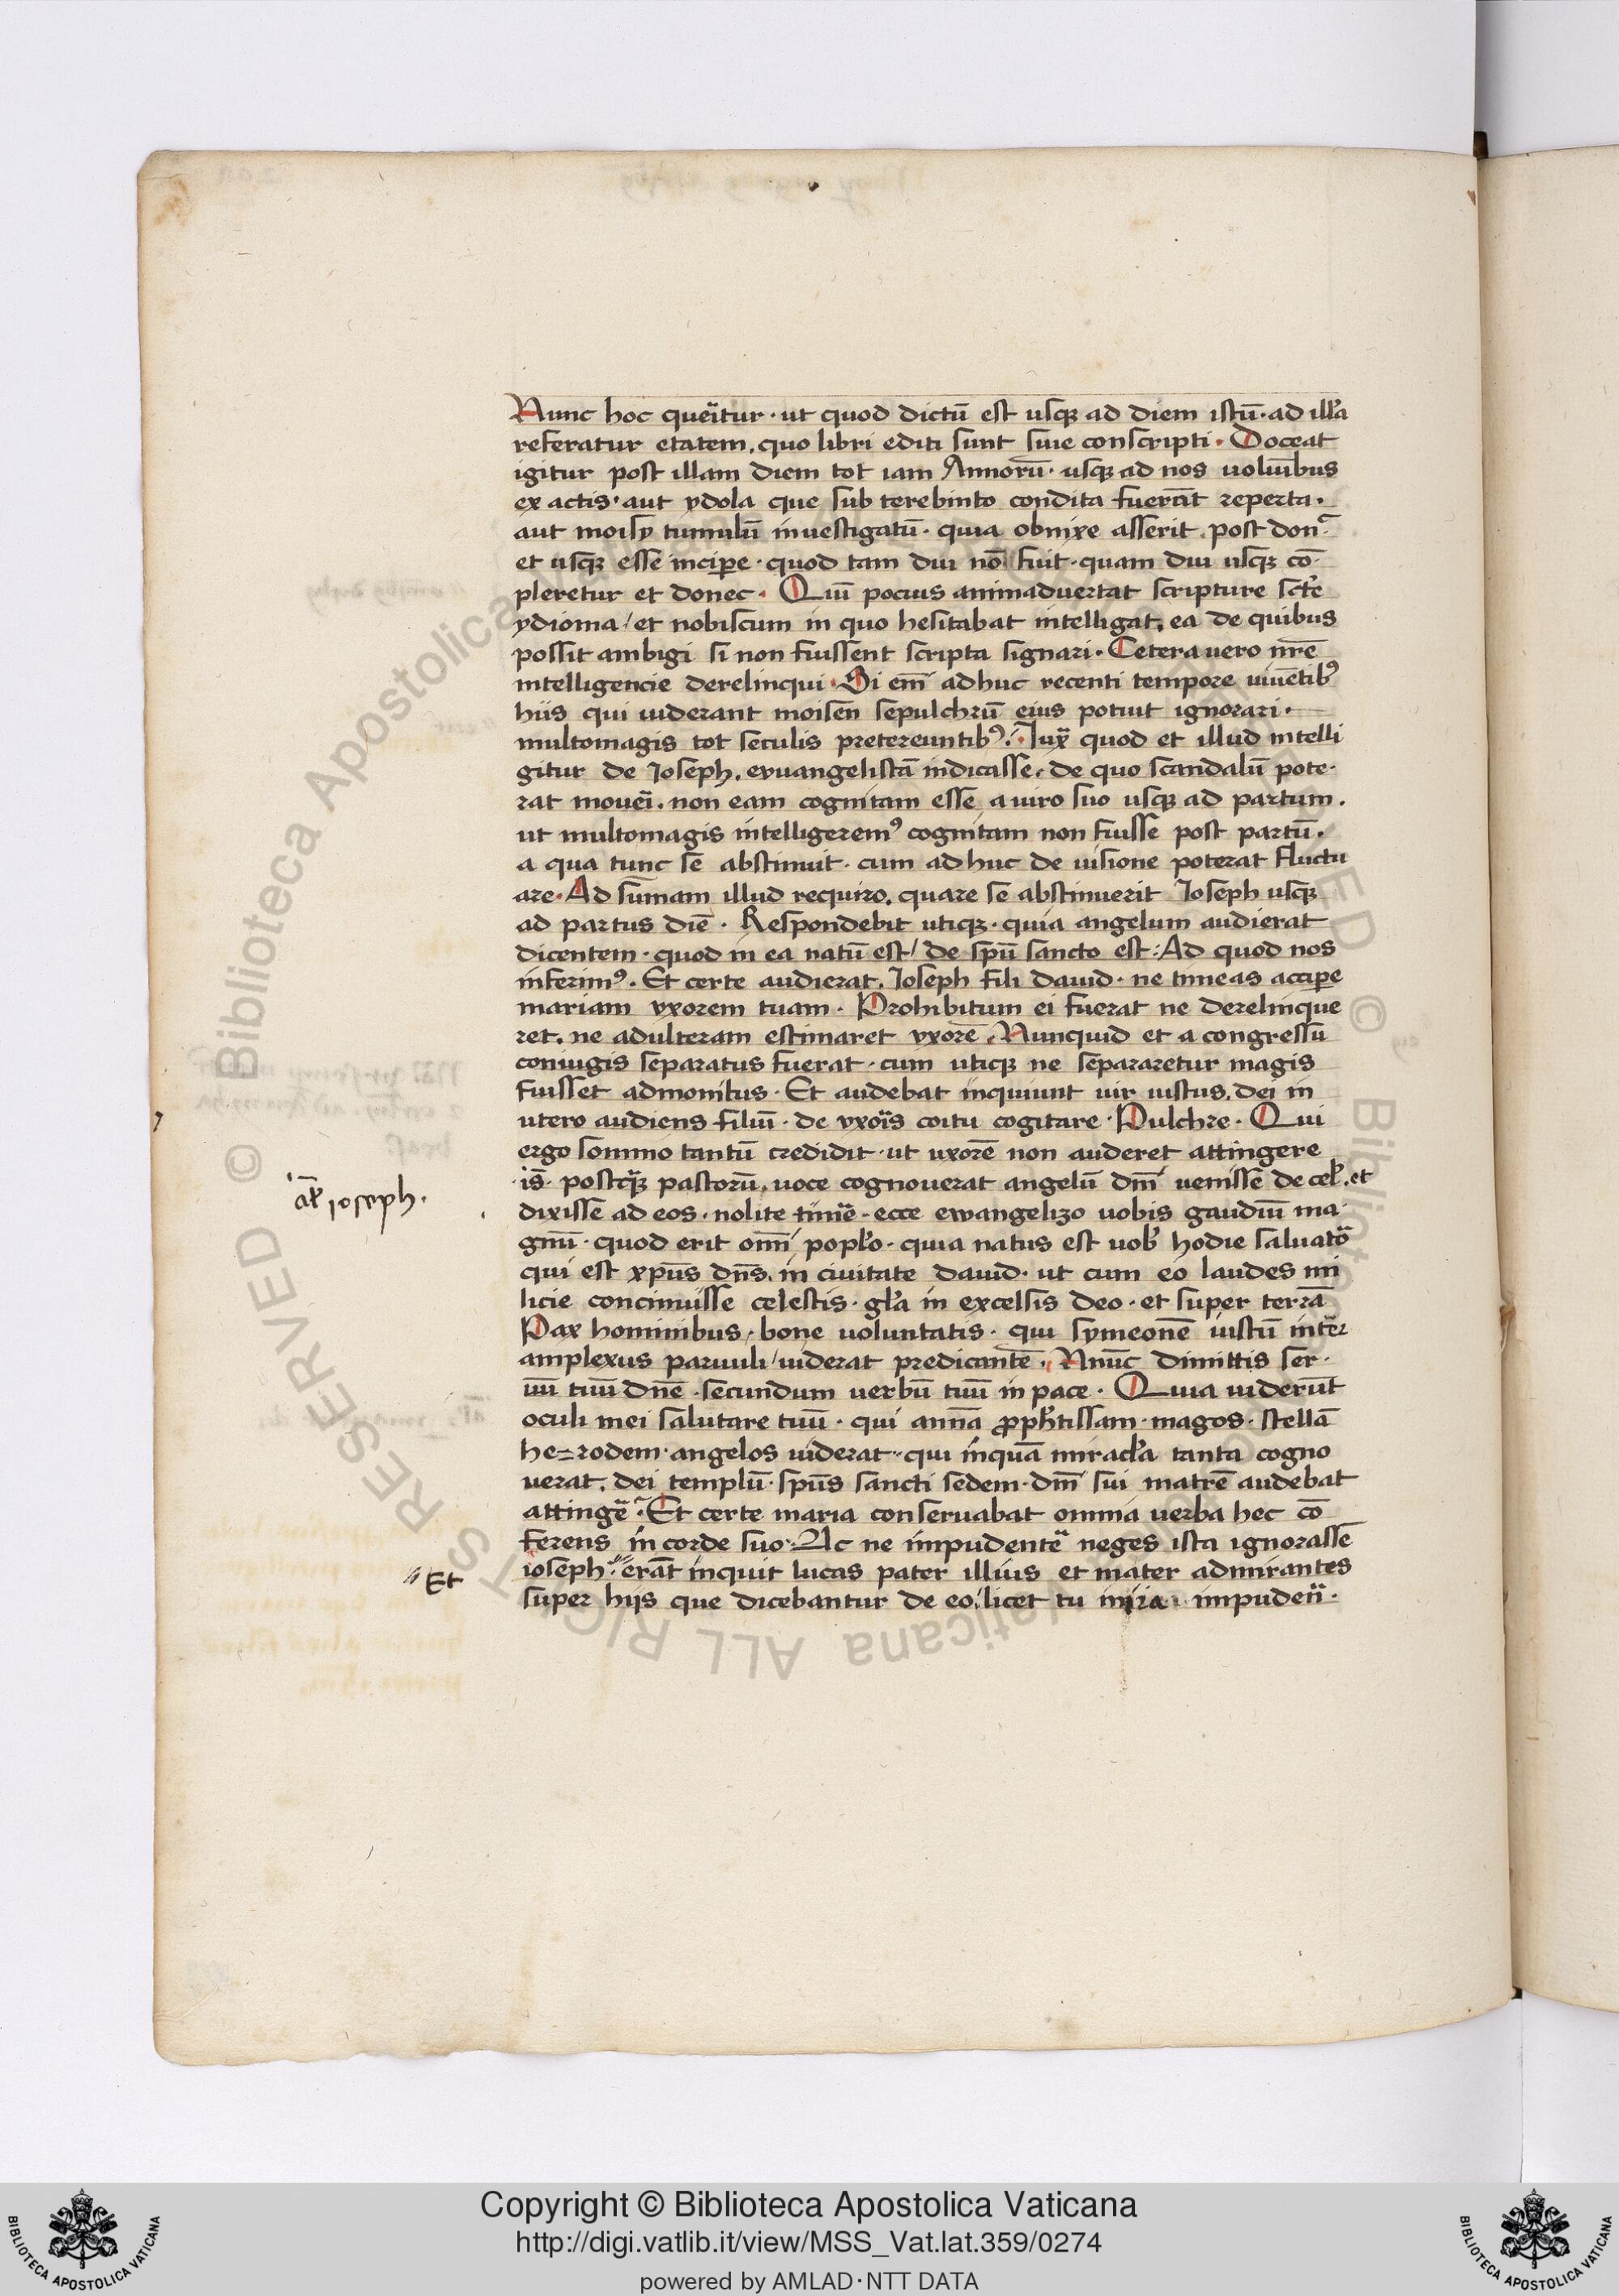 Nunc hoc querit̃ur · ut quod dictũ est usqꝫ ad diem istũ · ad illã
referatur etatem, quo libri editi sunt siue conscripti · Doceat
igitur post illam diem tot iam Annorũ · usqꝫ ad nos voluĩbus
ex actis · aut ydola que sub terebinto condita fuerãt reperta ·
aut moisy tumulũ inuestigatũ · quia obnixe asserit post don̾
et usqꝫ esse incipe · quod tam diu nõ fuit · quam diu usqꝫ cõ
pleretur et donec · Quĩ pocius animaduertat scripture scẽ
ydioma / et nobiscum in quo hesitabat intelligat, ea de quibus
possit ambigi si non fuissent scripta signari · Cetera vero nr̃e
intelligencie derelinqui · Si em̃ adhuc recenti tempore uiuẽtibꝰ
hiis qui uiderant moisen sepulchrũ eius potuit ignorari ·
multomagis tot seculis pretereuntibꝰ · Iux̃ quod et illud intelli
gitur de Ioseph, evuangelistã indicasse, de quo scandalũ pote
rat moueri, non eam cognitam esse a uiro suo usqꝫ ad partum,
ut multomagis intelligeremꝰ cognitam non fuisse post partũ ·
a qua tunc se abstinuit · cum adhuc de uisione poterat fluctu
are · Ad sum̃am illud requiro, quare se abstinuerit Ioseph usqꝫ
ad partus diẽ · Respondebit utiqꝫ · quia angelum audierat
dicentem · quod in ea natũ est / de spũ sancto est : Ad quod nos
inferimꝰ · Et certe audierat, Ioseph fili dauid · ne timeas accipe
mariam vxorem tuam · Prohibitum ei fuerat ne derelinque
ret, ne adulteram estimaret vxorẽ, Nunquid et a congressu
coniugis separatus fuerat · cum utiqꝫ ne separaretur magis
fuisset admonitus · Et audebat inquiunt uir iustus, dei in
utero audiens filiũ · de vxoris coitu cogitare · Pulchre · Qui
ergo somno tantũ credidit · ut uxorẽ non auderet attingere
·is̃· postqꝫ pastorũ, uoce cognouerat angelũ dm̃ uenisse de cel̾, et
al̾ ioseph ·
dixisse ad eos · nolite timẽ · ecce ewangelizo uobis gaudiũ ma
gnũ · quod erit om̃i popl̾o · quia natus est uob̾ hodie saluator̃
qui est xp̃us dñs, in ciuitate dauid · ut cum eo laudes mi
licie concinuisse celestis · gl̾a in excelsis deo · et super terrã
Pax hominibus · bone uoluntatis · qui symeonẽ iustũ int̃er
amplexus paruuli / uiderat predicantẽ · Nnũc dimittis ser
uũ tuũ dñe · secundum uerbũ tuũ in pace · Quia uiderũt
oculi mei salutare tuũ · qui annã ꝓph̾tissam · magos · stellã
he=rodem · angelos uiderat · qui inquã miracl̾a tanta cogno
uerat, dei templũ · spũs sancti sedem · dm̃ sui matrẽ audebat
attingẽ · Et certe maria conseruabat omnia uerba hec cõ
ferens in corde suo · Ac ne impudentẽ neges ista ignorassẽ
ioseph · " erãt inquit lucas pater illius et mater admirantes
" Et
super hijs que dicebantur de eo, licet tu mira impudeñ ·
Copyright © Biblioteca Apostolica Vaticana
http://digi.vatlib.it/view/MSS_Vat.lat.359/0274
powered by AMLAD·NTT DATA
BIBLIOTECA APOSTOLICA VATICANA
BIBLIOTECA APOSTOLICA VATICANA
© Biblioteca Apostolica Vaticana ALL RIGHTS RESERVED